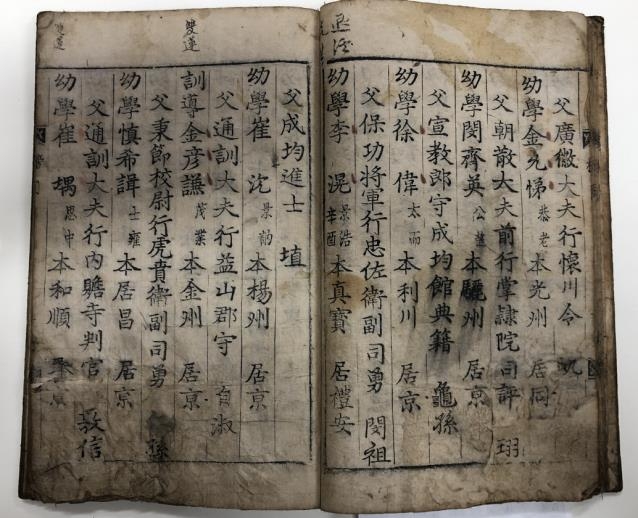 退溪
父廣徽大夫行懷川令
幼學金允悌 恭老 本光州 居同
父朝散大夫前行掌隸院司評 珝
幼學閔齊英 公 本驪州 居京
父宣教郎守成均館典籍 龜孫
幼學徐偉 太而 本利川 居京
父保功將軍行忠佐衛副司勇 閔祖
幼學李滉 景浩 辛酉 本真寶 居禮安
父成均進士 埴
幼學崔沇 景 本楊州 居京
父通訓大夫行益山郡守 自淑
雙蓮
訓導金彦謙 茂 本金州 居京
父秉節校尉行虎賁衛副司勇 孫
幼學慎希 士雍 本居昌 居京
父通訓大夫行內贍寺判官 信
雙蓮
幼學崔堣 思中 本和順 京